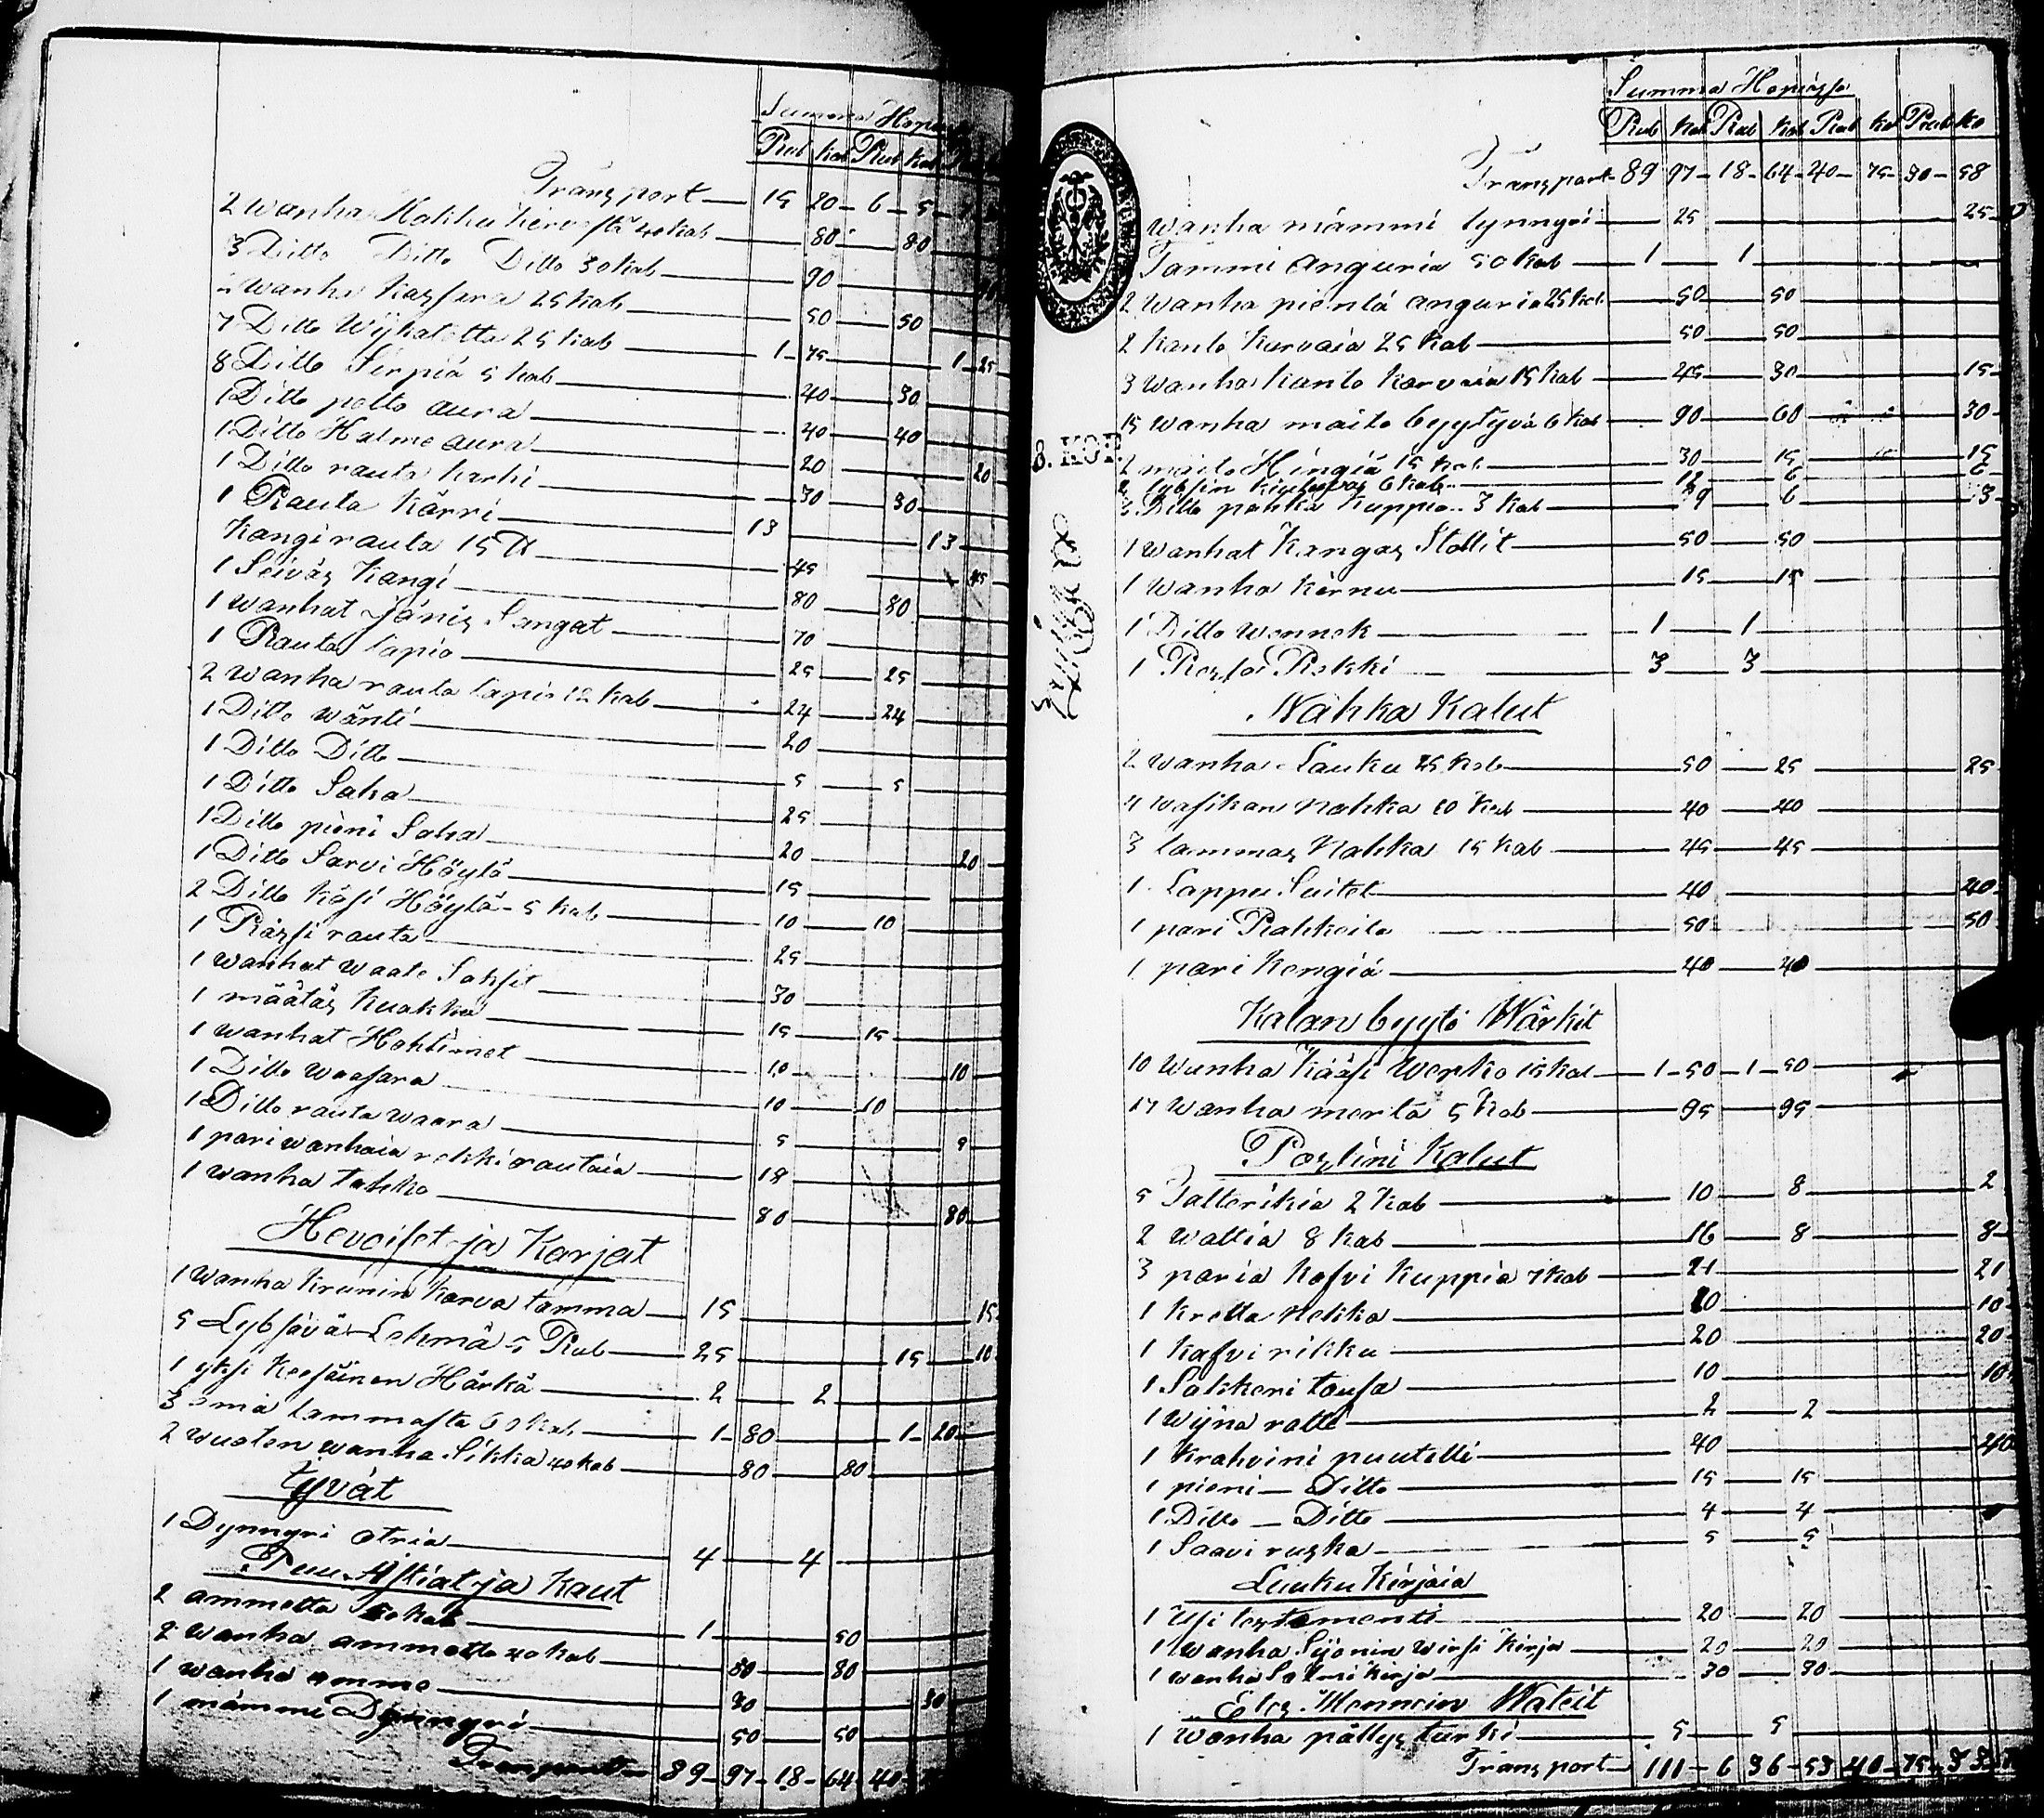 Summa Hopiassa
Rub kob Rub kob
Transport 15 20 6 5
2 wanha Kokku kervestä 40 kob 80 80
3 Ditto Ditto Ditto 30 kob 90
2 wanha kassara 25 kob 50 50
7 Ditto Wijkatetta 25 kob 1 75 1 25
8 Ditto Sirpiä 5 kob 40 30
1 Ditto pelto aura 40 40
1 Ditto Halme aura 20 20
1 Ditto rauta karhi 30 30
1 Rauta Kärri 13 13
Kangi rauta 15 ℔ 45 45
1 Seiväs Kangi 80 80
1 wanhat Jänis Sangat 70
1 Rauta lapio 25 25
2 wanha rauta lapio 12 kob 24 24
1 Ditto Wänti 20
1 Ditto Ditto 5 5
1 Ditto Saha 25
1 Ditto pieni Saha 20 20
1 Ditto Sarvi Höylä 15
2 Ditto Käsi Höylä 5 kob 10 10
1 Rässi rauta 25
1 wanhat waate Saksit 30
1 määtäs kuokka 15 15
1 wanhat Hohtimet 10 10
1 Ditto Wasara 10 10
1 Ditto rauta waara 5 5
1 pari wanhaia rekki rautaia 18
1 wanha tahko 80 80
Hevoiset ja Karjat
1 wanha Krunin Karva tamma 15 15
5 Lybsävä Lehmä 5 Rub 25 15 10
1 yksi kesäinen Härkä 2 2
3 emiä lammasta 60 kob 1 80 1 20
2 wuoten wanha Sikka 40 kob 80 80
Jyvät
1 Dynnyri otria 4 4
Puu Astiat ja Kaut
2 ammetta kob 1 50
2 wanha ammetta 40 kob 80 80
1 wanha amme 30 30
1 mämmi Dynnyri 50 50
Transport 89 97 18 64 40
Summa Hopiassa
Rub kob Rub kob Rub ko Rub ko
Transport 89 97 18 64 40 75 30 58
wanha mämmi tynnyri 25 25
Tammi Anguria 50 kob 1 1
2 wanha pientä anguria 25 kob 50 50
2 kanto kurvaia 25 kob 50 50
3 wanha kanto karvaia 15 kob 45 30 15
15 wanha maito byytyvä 6 kob 90 60 30
8. KOP.
2 maito Hingiä 15 kob 30 15 15
2 lybsin 6 kob 12 6 6
3 Ditto pahka Kuppia 3 kob 9 6 3
1 wanhat Kangas Stollit 50 50
1 wanha Kärnu 15 15
1 Ditto Wennek 1 1
1 Rekki 3 3
Nahka Kalut
2 wanha Lauku 25 kob 50 25 25
4 wasikan nahka 10 kob 40 40
3 lammas Nahka 15 kob 45 45
1 Lappu Suitet 40 40
1 pari Rahkeita 50 50
1 pari Kengiä 40 40
Kalan byytö Wärkit
10 Wanha Kääsi Werko 15 kob 1 50 1 50
17 wanha merta 5 kob 95 95
Poslini Kalut
5 Talterikia 2 kob 10 8 2
2 wattia 8 kob 16 8 8
3 paria kafvi kuppia 7 kob 21 21
1 kretta nekka 10 10
1 kafvi rikku 20 20
1 Sokkeri tousa 10 10
1 wijna ratti 2 2
1 krahvini puutelli 40 40
1 pieni Ditto 15 15
1 Ditto Ditto 4 4
1 Saavi ruska 5 5
Luuku Kirjaia
1 Usi testamenti 20 20
1 wanha Sijonin wirsi kirja 20 20
1 wanha kirja 30 30
Etes Mennein Wateit
1 wanha pällys turki 5 5
Transport 111 6 36 53 40 75 33